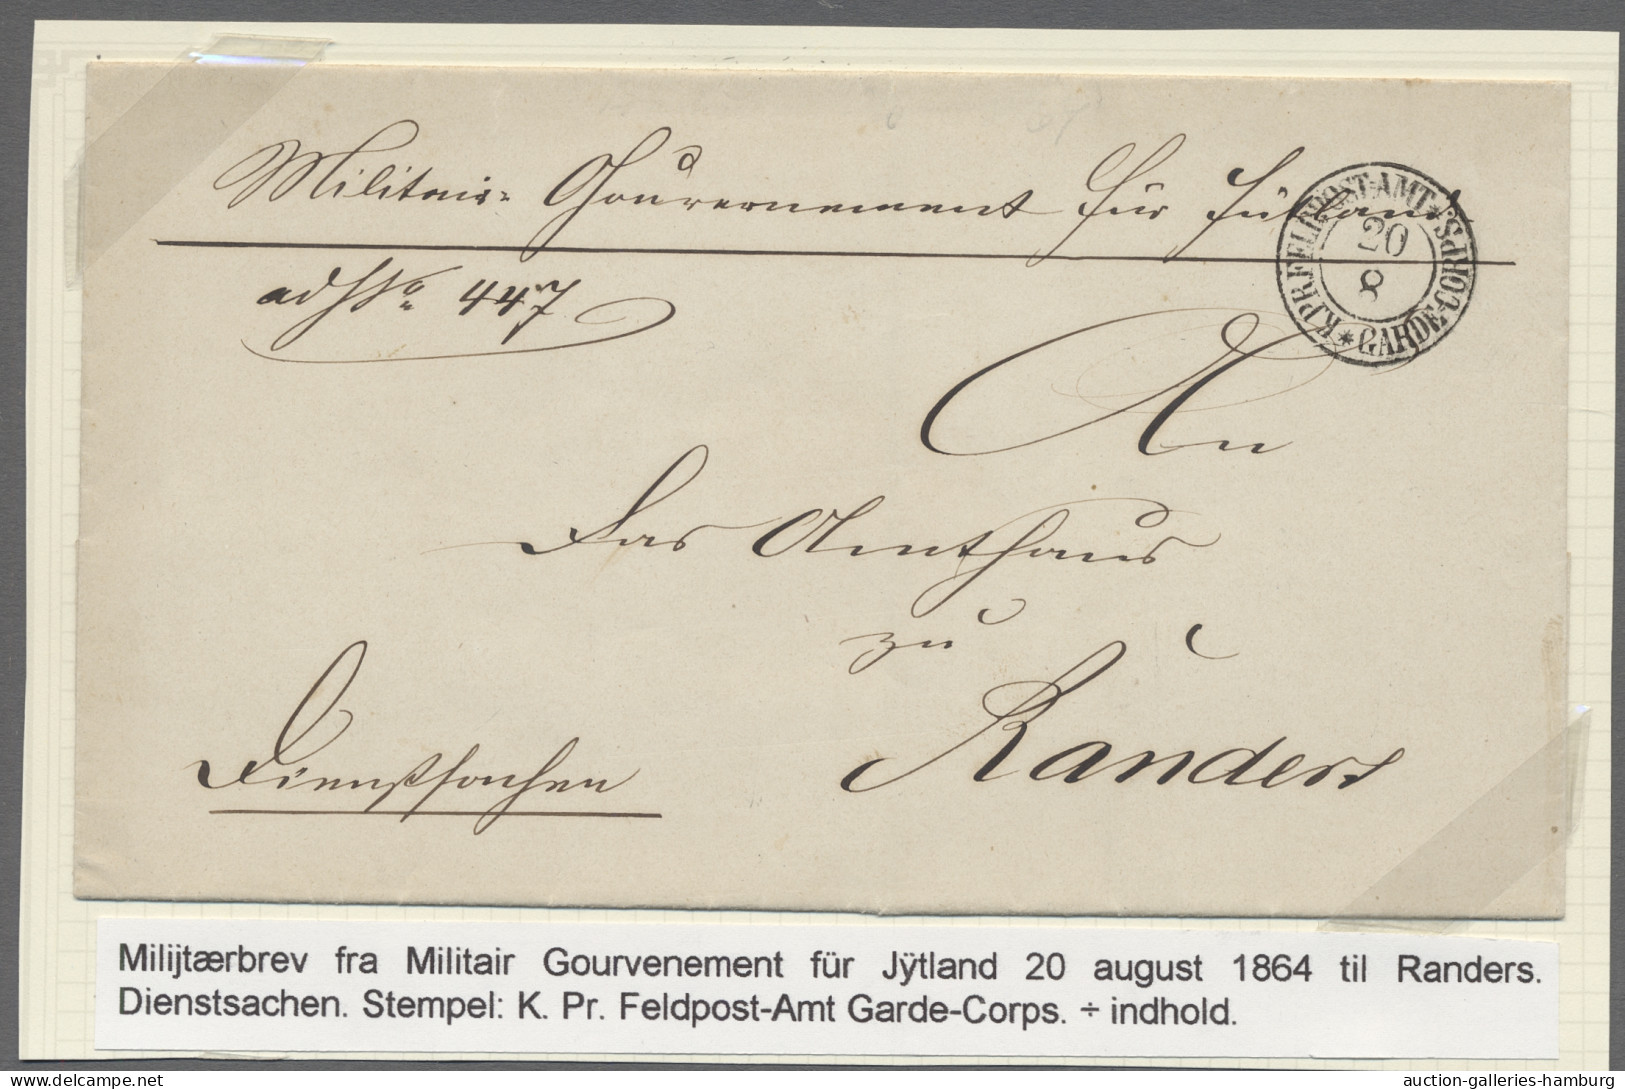 Militair-Gouvernement für Jütland
K.PR.FELDPOST-AMT * GARDE-CORPS *
20
8
ad No 447
An
Das Amthaus
zu
Randers
Dienstsachen
Milijtærbrev fra Militair Gourvenement für Jÿtland 20 august 1864 til Randers.
Dienstsachen. Stempel: K. Pr. Feldpost-Amt Garde-Corps. ÷ indhold.
auction-galleries-hamburg